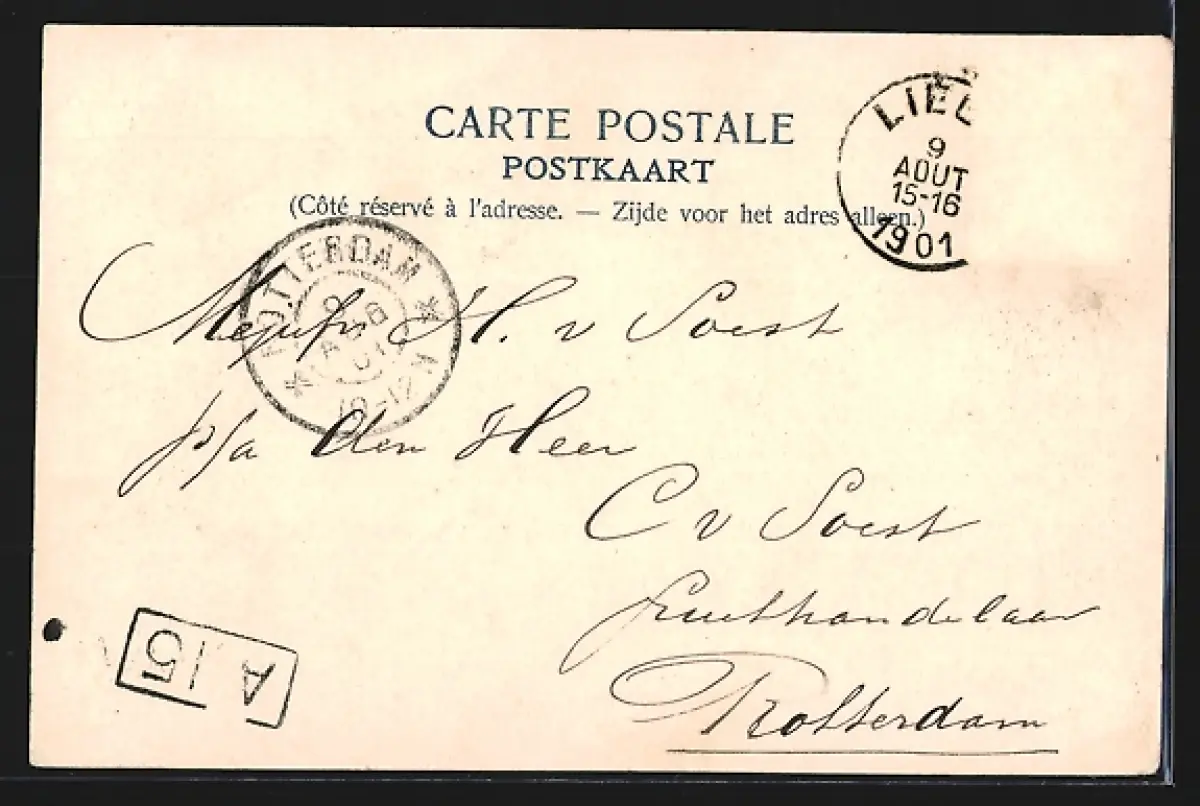 CARTE POSTALE
POSTKAART
(Côté réservé à l'adresse. — Zijde voor het adres alleen.)
LIÈG
9
AOUT
15-16
1901
ROTTERDAM
10-12 V
Mejufr H. v Soest
p/a den Heer
C v Soest
Fruithandelaar
Rotterdam
A 15